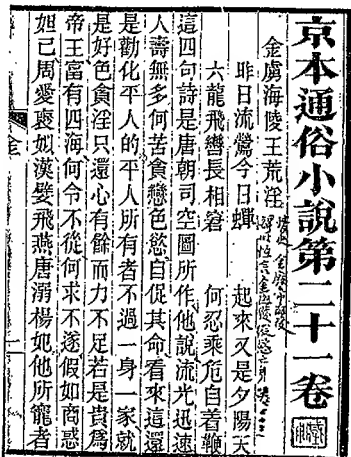 京本通俗小說第二十一卷
金虜海陵王荒淫
昨日流鶯今日蟬 起來又是夕陽天
六龍飛轡長相窘 何忍乘危自着鞭
這四句詩是唐朝司空圖所作他說流光迅速
人壽無多何苦貪戀色慾自促其命看來這還
是勸化平人的平人所有者不過一身一家就
是好色貪淫只還心有餘而力不足若是貴爲
帝王富有四海何令不從何求不遂假如商惑
妲己周愛褒姒漢嬖飛燕唐溺楊妃他所寵者